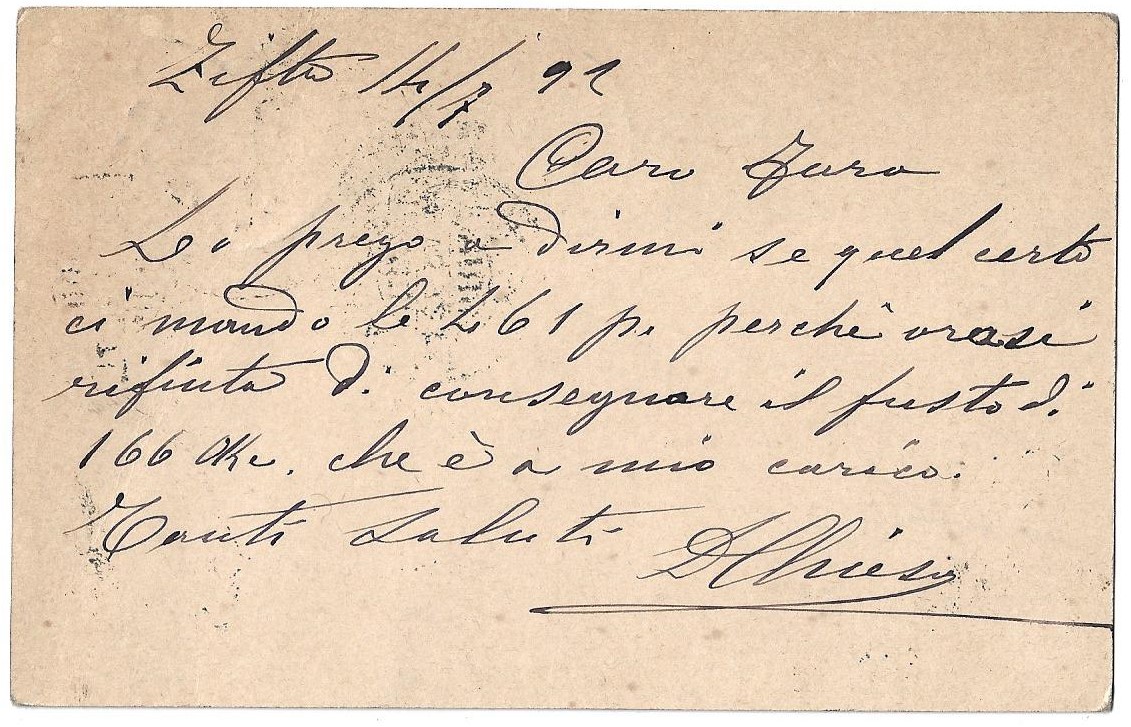 Zifta 14/7 92
Caro Zuro
La prego a dirmi se quel certo
ci mandò le L 61 p. perchè ora si
rifiuta di consegnare il fusto di
166 Oke. che è a mio carico.
Tanti saluti DChiesa